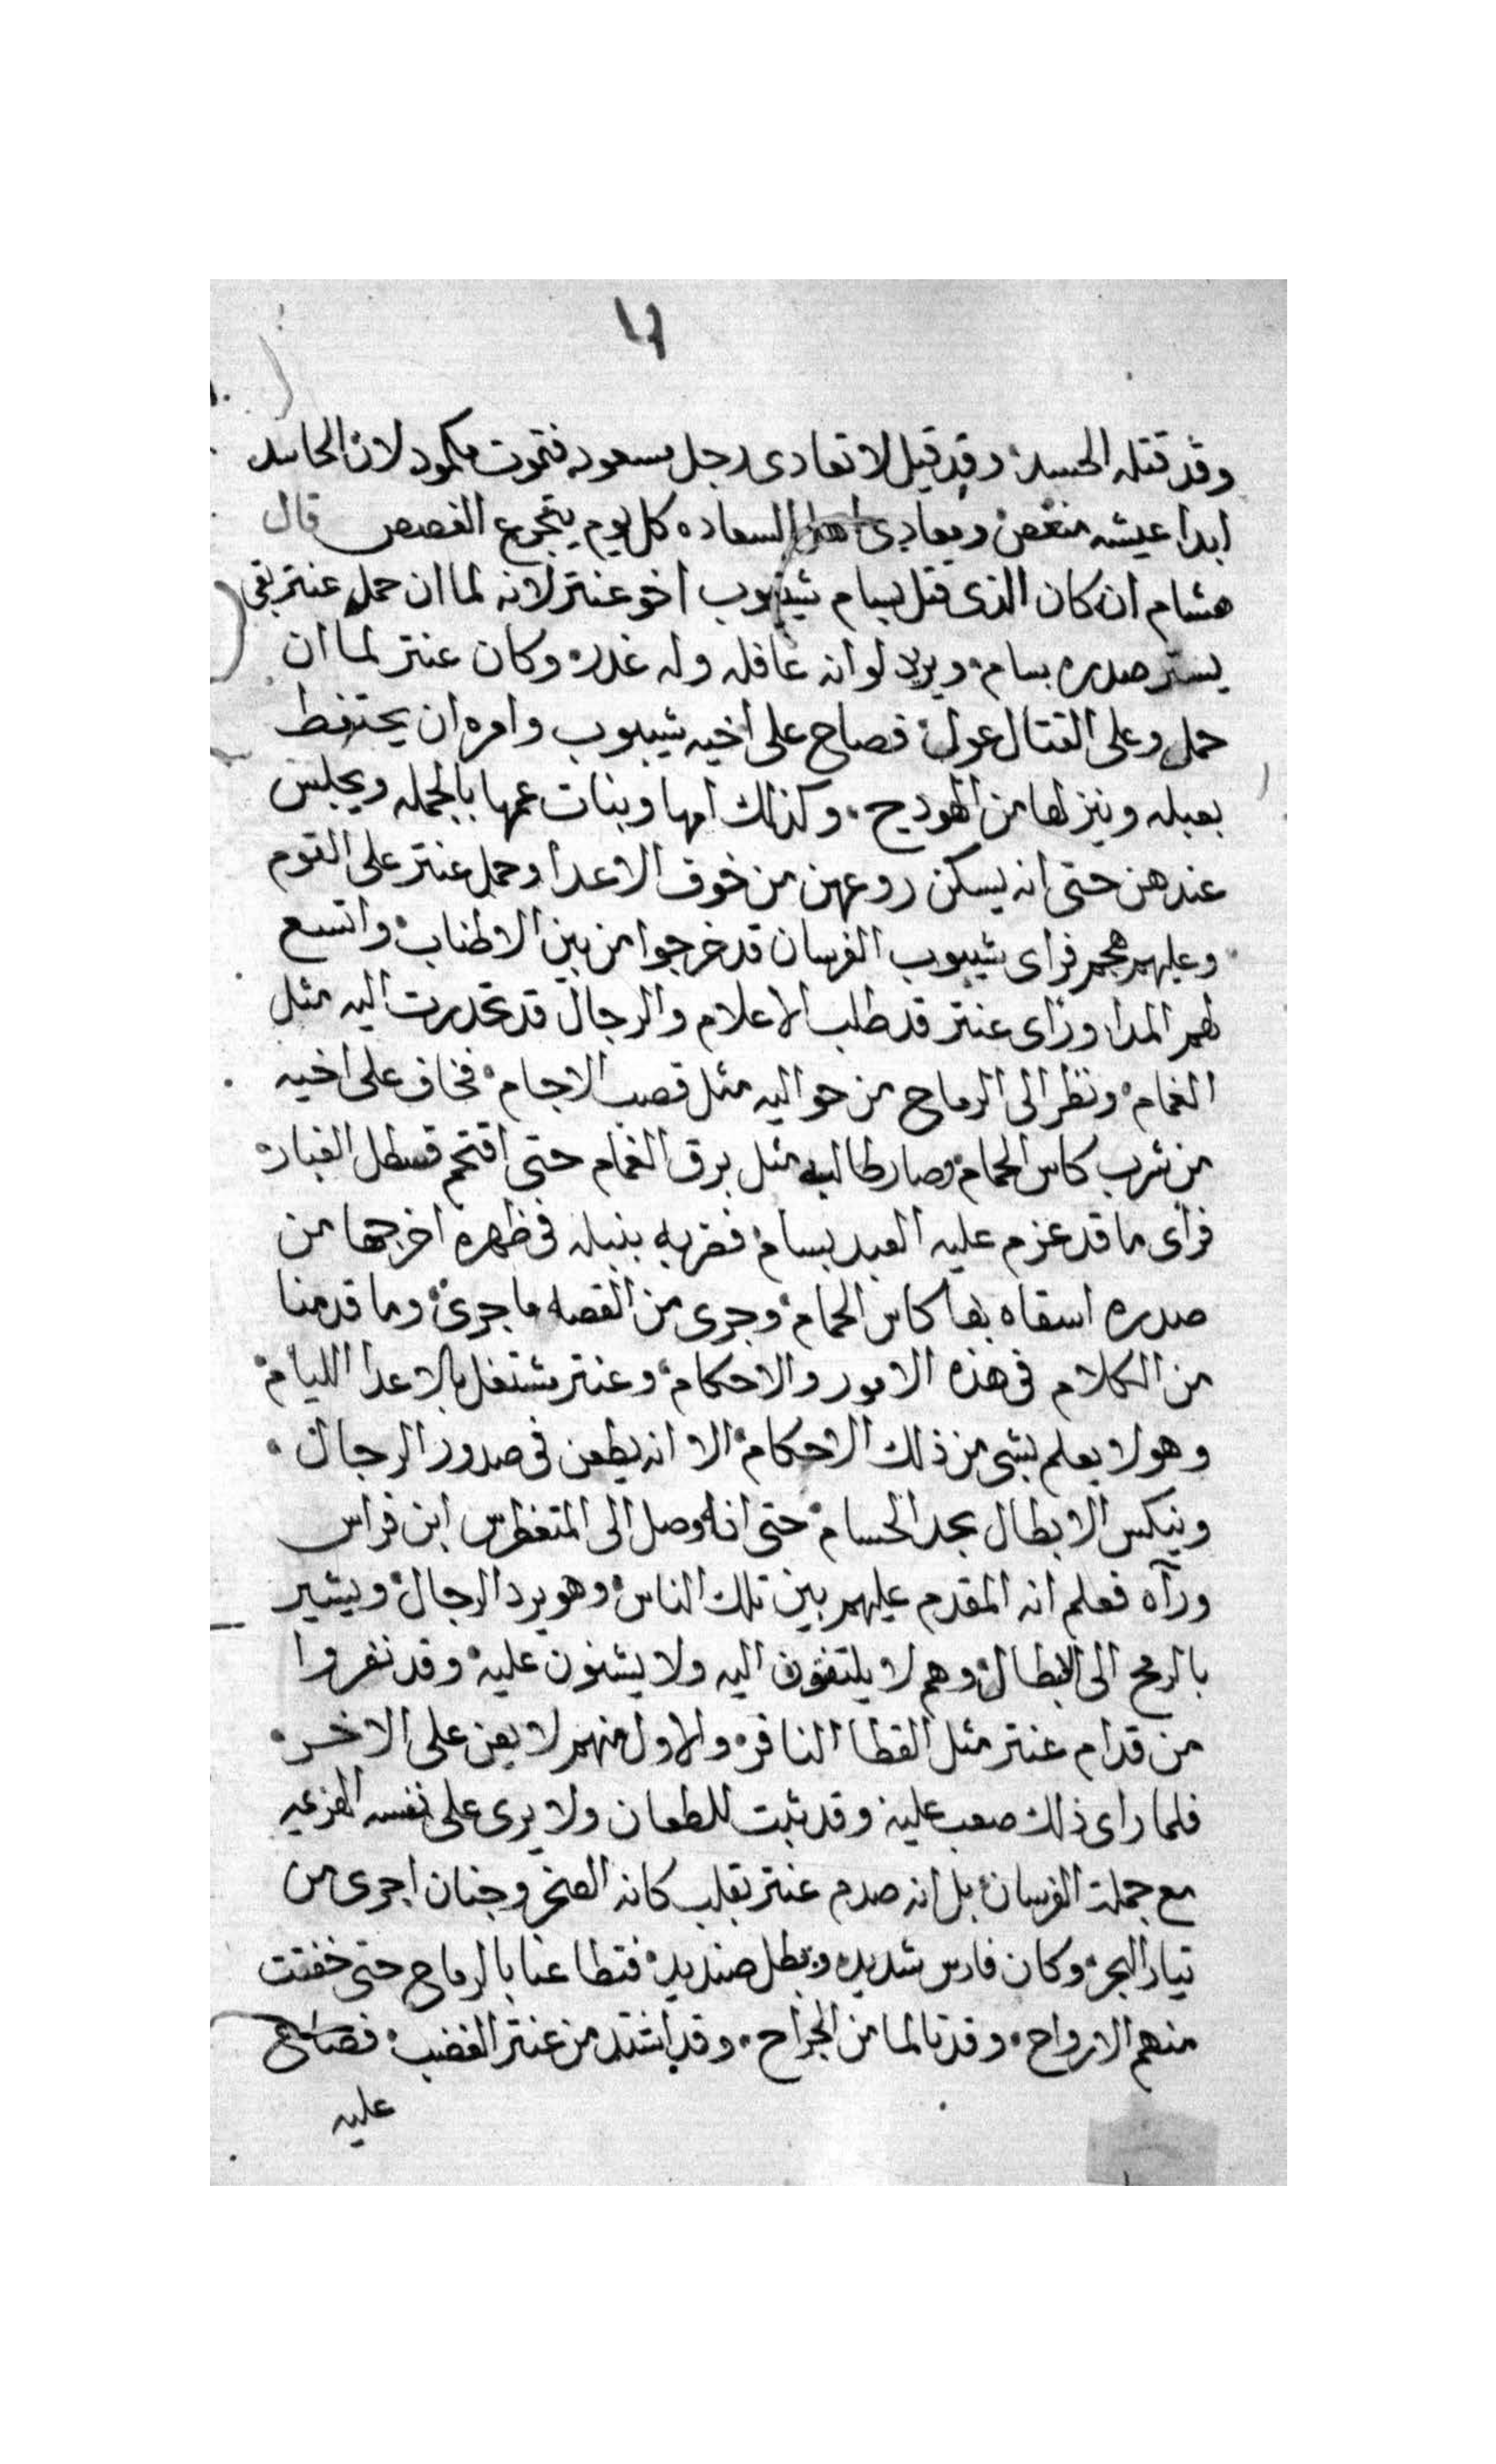 وقد قتله الحسد وقد قيل لا تعادى رجل مسعود فتموت مكمود لان الحاسد
ابدا عيشه منغص ومعادى اهل السعاده كل يوم يتجرع الغصص قال
هشام ان كان الذى قتل بسام شيبوب اخو عنتر لانه لما ان حمل عنتر بقى
يستر صدره بسام ويريد لو انه غافله وله غدر وكان عنتر لما ان
حمل وعلى القتال عول فصاح على اخيه شيبوب وامره ان يحتفظ
بعبله وينزلها من الهودج وكذلك امها وبنات عمها بالجمله ويجلس
عندهن حتى انه يسكن روعهن من خوف الاعدا وحمل عنتر على القوم
وعليهم هجم فراى شيبوب الفرسان قد خرجوا من بين الاطناب واتسع
لهم المدا وراى عنتر قد طلب الاعلام والرجال قد تحدرت اليه مثل
الغمام ونظر الى الرماح من حواليه مثل قصب الاجام فخاف على اخيه
من شرب كاس الحمام وصار طالبه مثل برق الغمام حتى اقتحم قسطل الغبار
فراى ما قد عزم عليه العبد بسام فضربه بنبله فى ظهره اخرجها من
صدره اسقاه بها كاس الحمام وجرى من القصه ما جرى وما قدمنا
من الكلام فى هذه الامور والاحكام وعنتر مشتغل بالاعدا الليام
وهو لا يعلم بشى من ذلك الاحكام الا انه يطعن فى صدور الرجال
وينكس الابطال بحد الحسام حتى انه وصل الى المتغطرس ابن فراس
ورآه فعلم انه المقدم عليهم بين تلك الناس وهو يرد الرجال ويشير
بالرمح الى الابطال وهم لا يلتفتون اليه ولا يثنون عليه وقد نفروا
من قدام عنتر مثل القطا النافر والاول منهم لا يعن على الاخر
فلما راى ذلك صعب عليه وقد ثبت للطعان ولا يرى على نفسه الهزيمه
مع جملة الفرسان بل انه صدم عنتر بقلب كانه الصخر وجنان اجرى من
تيار البحر وكان فارس شديد وبطل صنديد فتطاعنا بالرماح حتى خفتت
منهم الارواح وقد تالما من الجراح وقد اشتد من عنتر الغضب فصاح
عليه